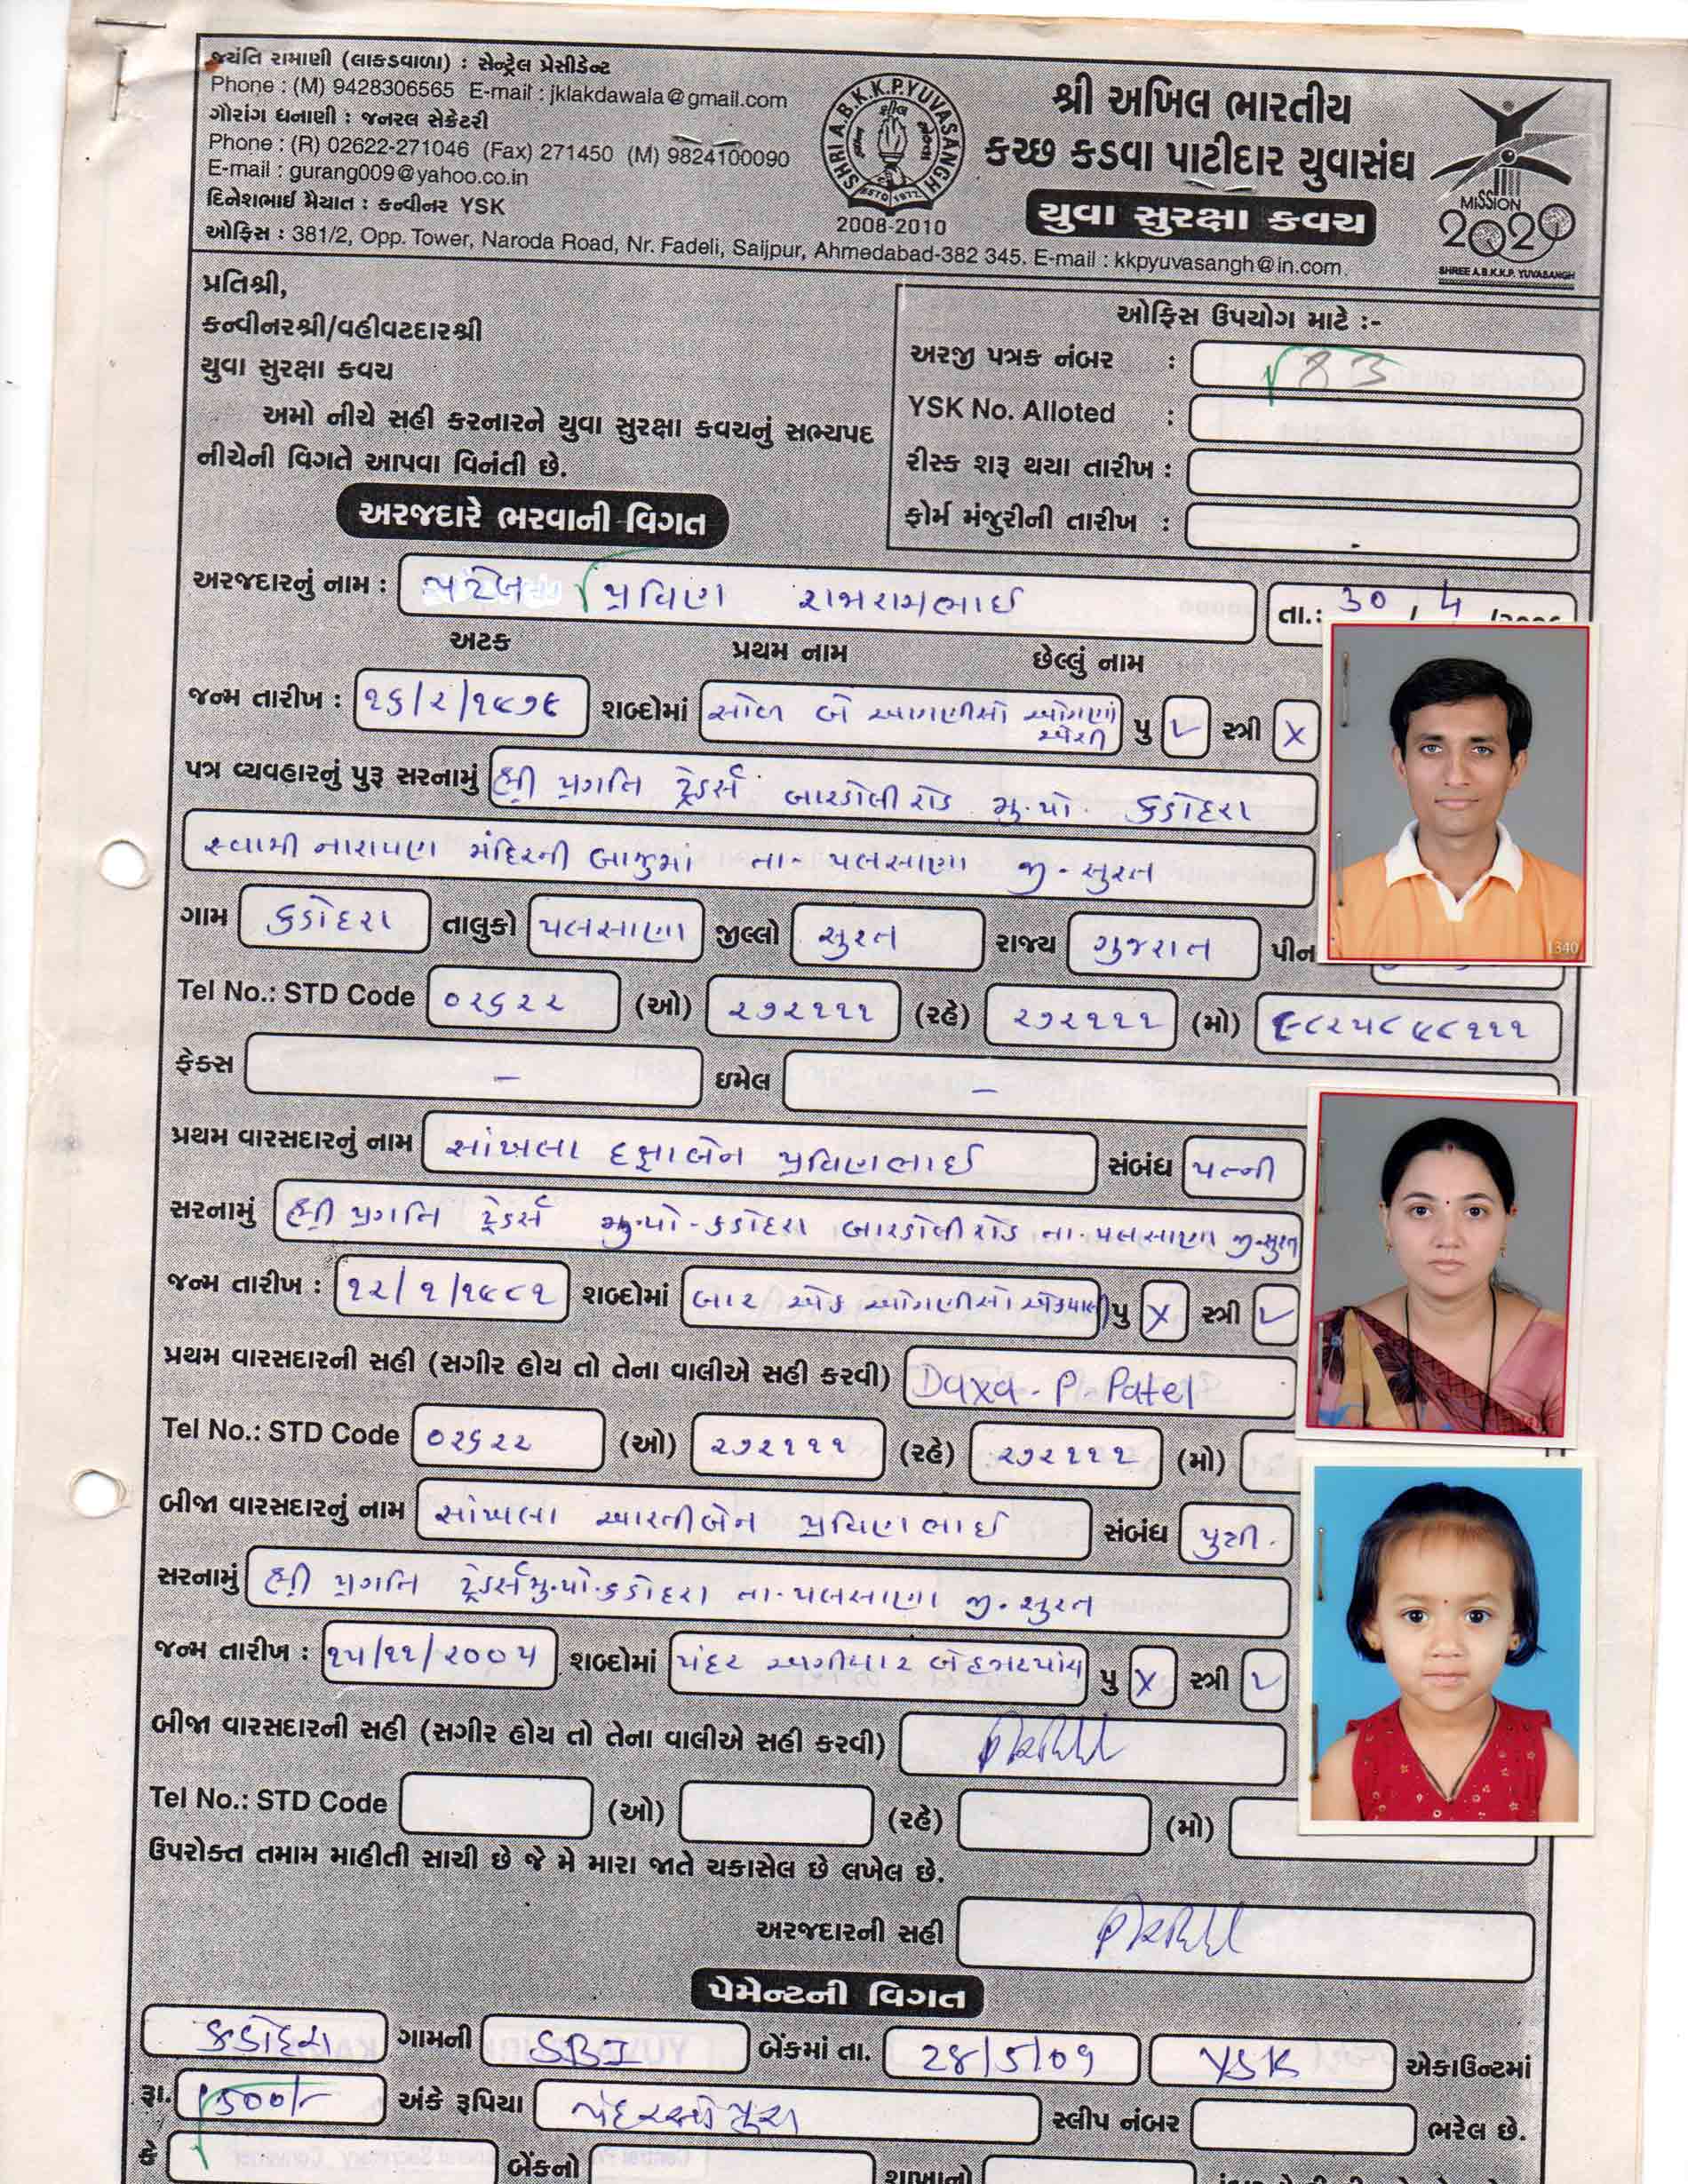 જયંતિ રામાણી (લાકડાવાળા) : સેન્ટ્રેલ પ્રેસીડેન્ટ
Phone : (M) 9428306565 E-mail : jklakdawala@gmail.com
ગૌરાંગ ધનાણી : જનરલ સેક્રેટરી
Phone : (R) 02622-271046 (Fax) 271450 (M) 9824100090
E-mail : gurang009@yahoo.co.in
દિનેશભાઈ મૈયાત : કન્વીનર YSK
ઓફિસ : 381/2, Opp. Tower, Naroda Road, Nr. Fadeli, Saijpur, Ahmedabad-382 345. E-mail : kkpyuvasangh@in.com.
SHRI A.B.K.K.P. YUVASANGH
ESTD 1972
2008-2010
શ્રી અખિલ ભારતીય
કચ્છ કડવા પાટીદાર યુવાસંઘ
યુવા સુરક્ષા કવચ
MISSION
2020
SHREE A.B.K.K.P. YUVASANGH
પ્રતિશ્રી,
કન્વીનરશ્રી/વહીવટદારશ્રી
યુવા સુરક્ષા કવચ
અમો નીચે સહી કરનારને યુવા સુરક્ષા કવચનું સભ્યપદ
નીચેની વિગતે આપવા વિનંતી છે.
ઓફિસ ઉપયોગ માટે :-
અરજી પત્રક નંબર : 83
YSK No. Alloted :
રીસ્ક શરૂ થયા તારીખ :
ફોર્મ મંજુરીની તારીખ :
અરજદારે ભરવાની વિગત
અરજદારનું નામ : પટેલ પ્રવિણ રાજારામભાઈ તા.: 30 / 4
અટક પ્રથમ નામ છેલ્લું નામ
જન્મ તારીખ : ૧૬/૨/૧૯૭૯ શબ્દોમાં સોળ બે ઓગણીસો ઓગણાએંસી પુ ✓ સ્ત્રી X
પત્ર વ્યવહારનું પુરૂ સરનામું શ્રી પ્રગતિ ટ્રેડર્સ બારડોલી રોડ મુ.પો. કડોદરા
સ્વામી નારાયણ મંદિરની બાજુમાં તા- પલસાણા જી- સુરત
ગામ કડોદરા તાલુકો પલસાણા જીલ્લો સુરત રાજ્ય ગુજરાત પીન
Tel No.: STD Code ૦૨૬૨૨ (ઓ) ૨૭૨૧૧૧ (રહે) ૨૭૨૧૧૧ (મો) ૯૮૨૫૮૯૮૧૧૧
ફેક્સ – ઇમેલ –
પ્રથમ વારસદારનું નામ સાંખલા દક્ષાબેન પ્રવિણભાઈ સંબંધ પત્ની
સરનામું શ્રી પ્રગતિ ટ્રેડર્સ મુ.પો-કડોદરા બારડોલી રોડ તા.પલસાણા જી-સુરત
જન્મ તારીખ : ૧૨/૧/૧૯૮૧ શબ્દોમાં બાર એક ઓગણીસો એકયાસી પુ X સ્ત્રી ✓
પ્રથમ વારસદારની સહી (સગીર હોય તો તેના વાલીએ સહી કરવી) Daxa- P- Patel
Tel No.: STD Code ૦૨૬૨૨ (ઓ) ૨૭૨૧૧૧ (રહે) ૨૭૨૧૧૧ (મો)
બીજા વારસદારનું નામ સાંખલા આરતીબેન પ્રવિણભાઈ સંબંધ પુત્રી.
સરનામું શ્રી પ્રગતિ ટ્રેડર્સ મુ.પો.કડોદરા તા-પલસાણા જી. સુરત
જન્મ તારીખ : ૧૫/૧૧/૨૦૦૫ શબ્દોમાં પંદર અગીયાર બેહજારપાંચ પુ X સ્ત્રી ✓
બીજા વારસદારની સહી (સગીર હોય તો તેના વાલીએ સહી કરવી)
Tel No.: STD Code (ઓ) (રહે) (મો)
ઉપરોક્ત તમામ માહીતી સાચી છે જે મે મારા જાતે ચકાસેલ છે લખેલ છે.
અરજદારની સહી
પેમેન્ટની વિગત
કડોદરા ગામની SBI બેંકમાં તા. 28/5/09 YSK એકાઉન્ટમાં
રૂા. 1500/- અંકે રૂપિયા પંદરસો પુરા સ્લીપ નંબર ભરેલ છે.
કે બેંકનો શાખાનો
1340